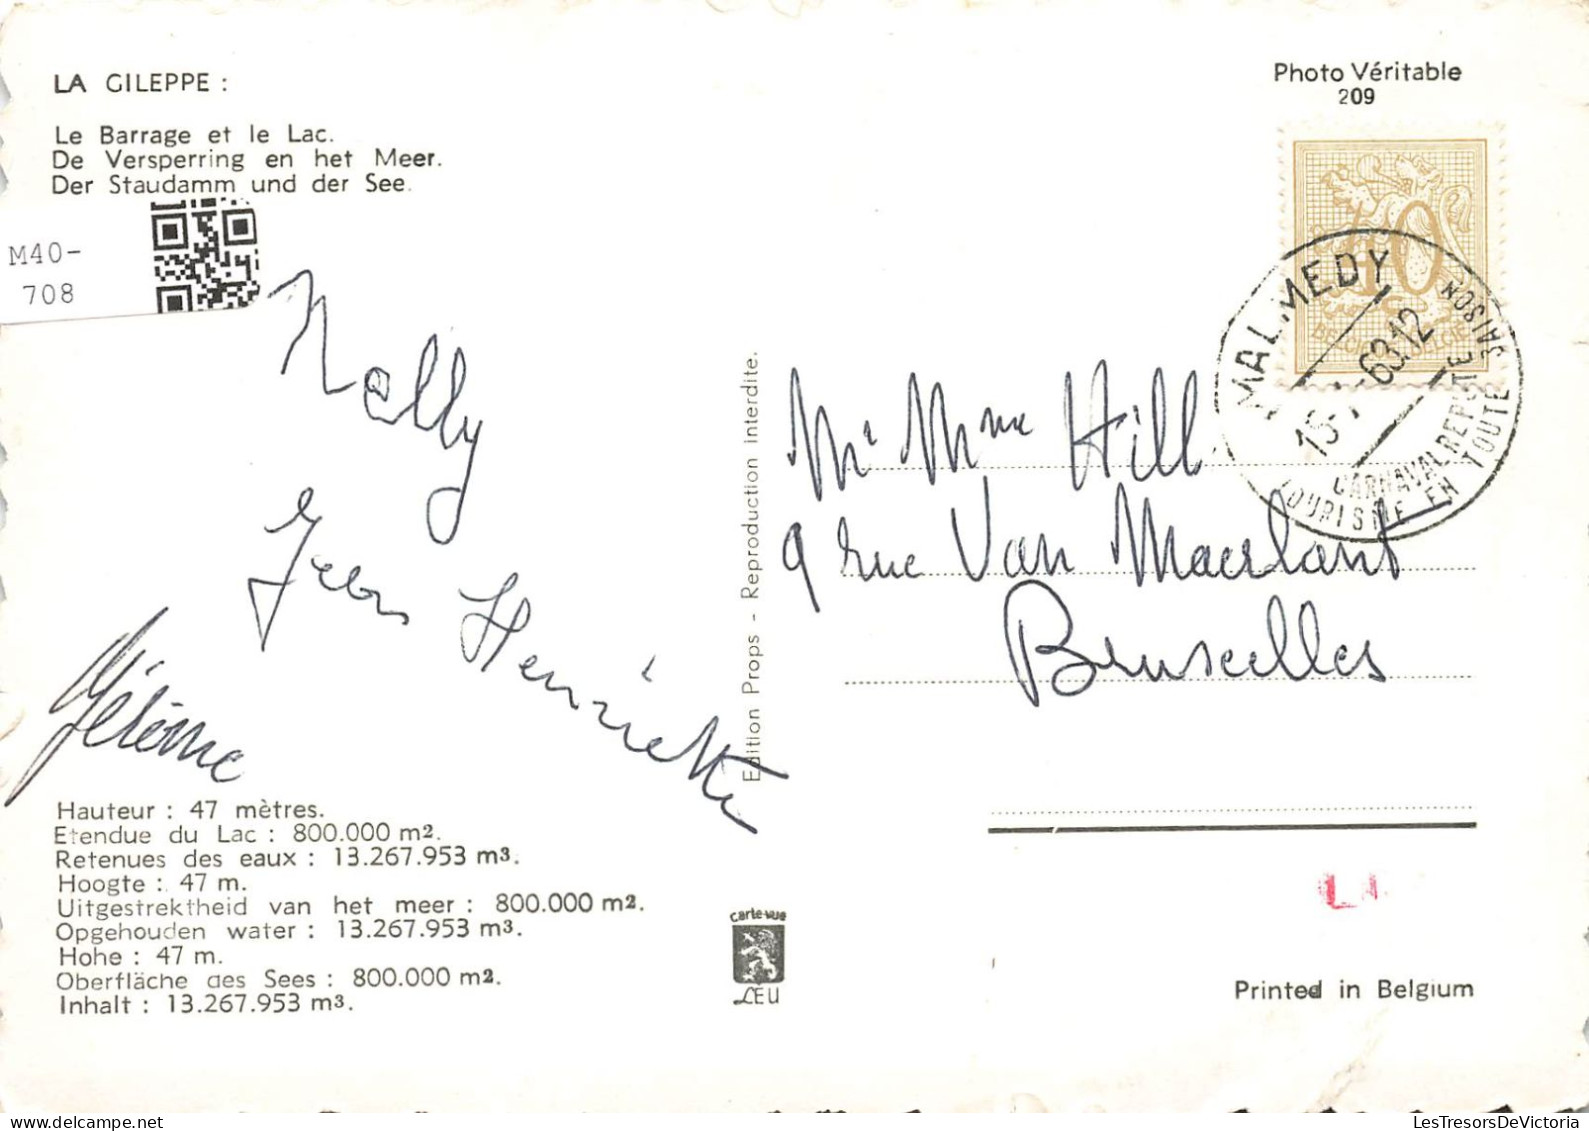 LA GILEPPE :
Le Barrage et le Lac.
De Versperring en het Meer.
Der Staudamm und der See.
M40-
708
Nelly
Henriette
Jérôme
Hauteur : 47 mètres.
Etendue du Lac : 800.000 m2.
Retenues des eaux : 13.267.953 m3.
Hoogte : 47 m.
Uitgestrektheid van het meer : 800.000 m2.
Opgehouden water : 13.267.953 m3.
Hohe : 47 m.
Oberfläche des Sees : 800.000 m2.
Inhalt : 13.267.953 m3.
Edition Props - Reproduction interdite.
carte-vue
LEU
Photo Véritable
209
40
BELGIQUE BELGIE
MALMEDY
63.12
CARNAVAL REPUTE
TOURISME EN TOUTE SAISON
Mr Mme Hill
9 rue Van Maerlant
Bruxelles
Printed in Belgium
LesTresorsDeVictoria